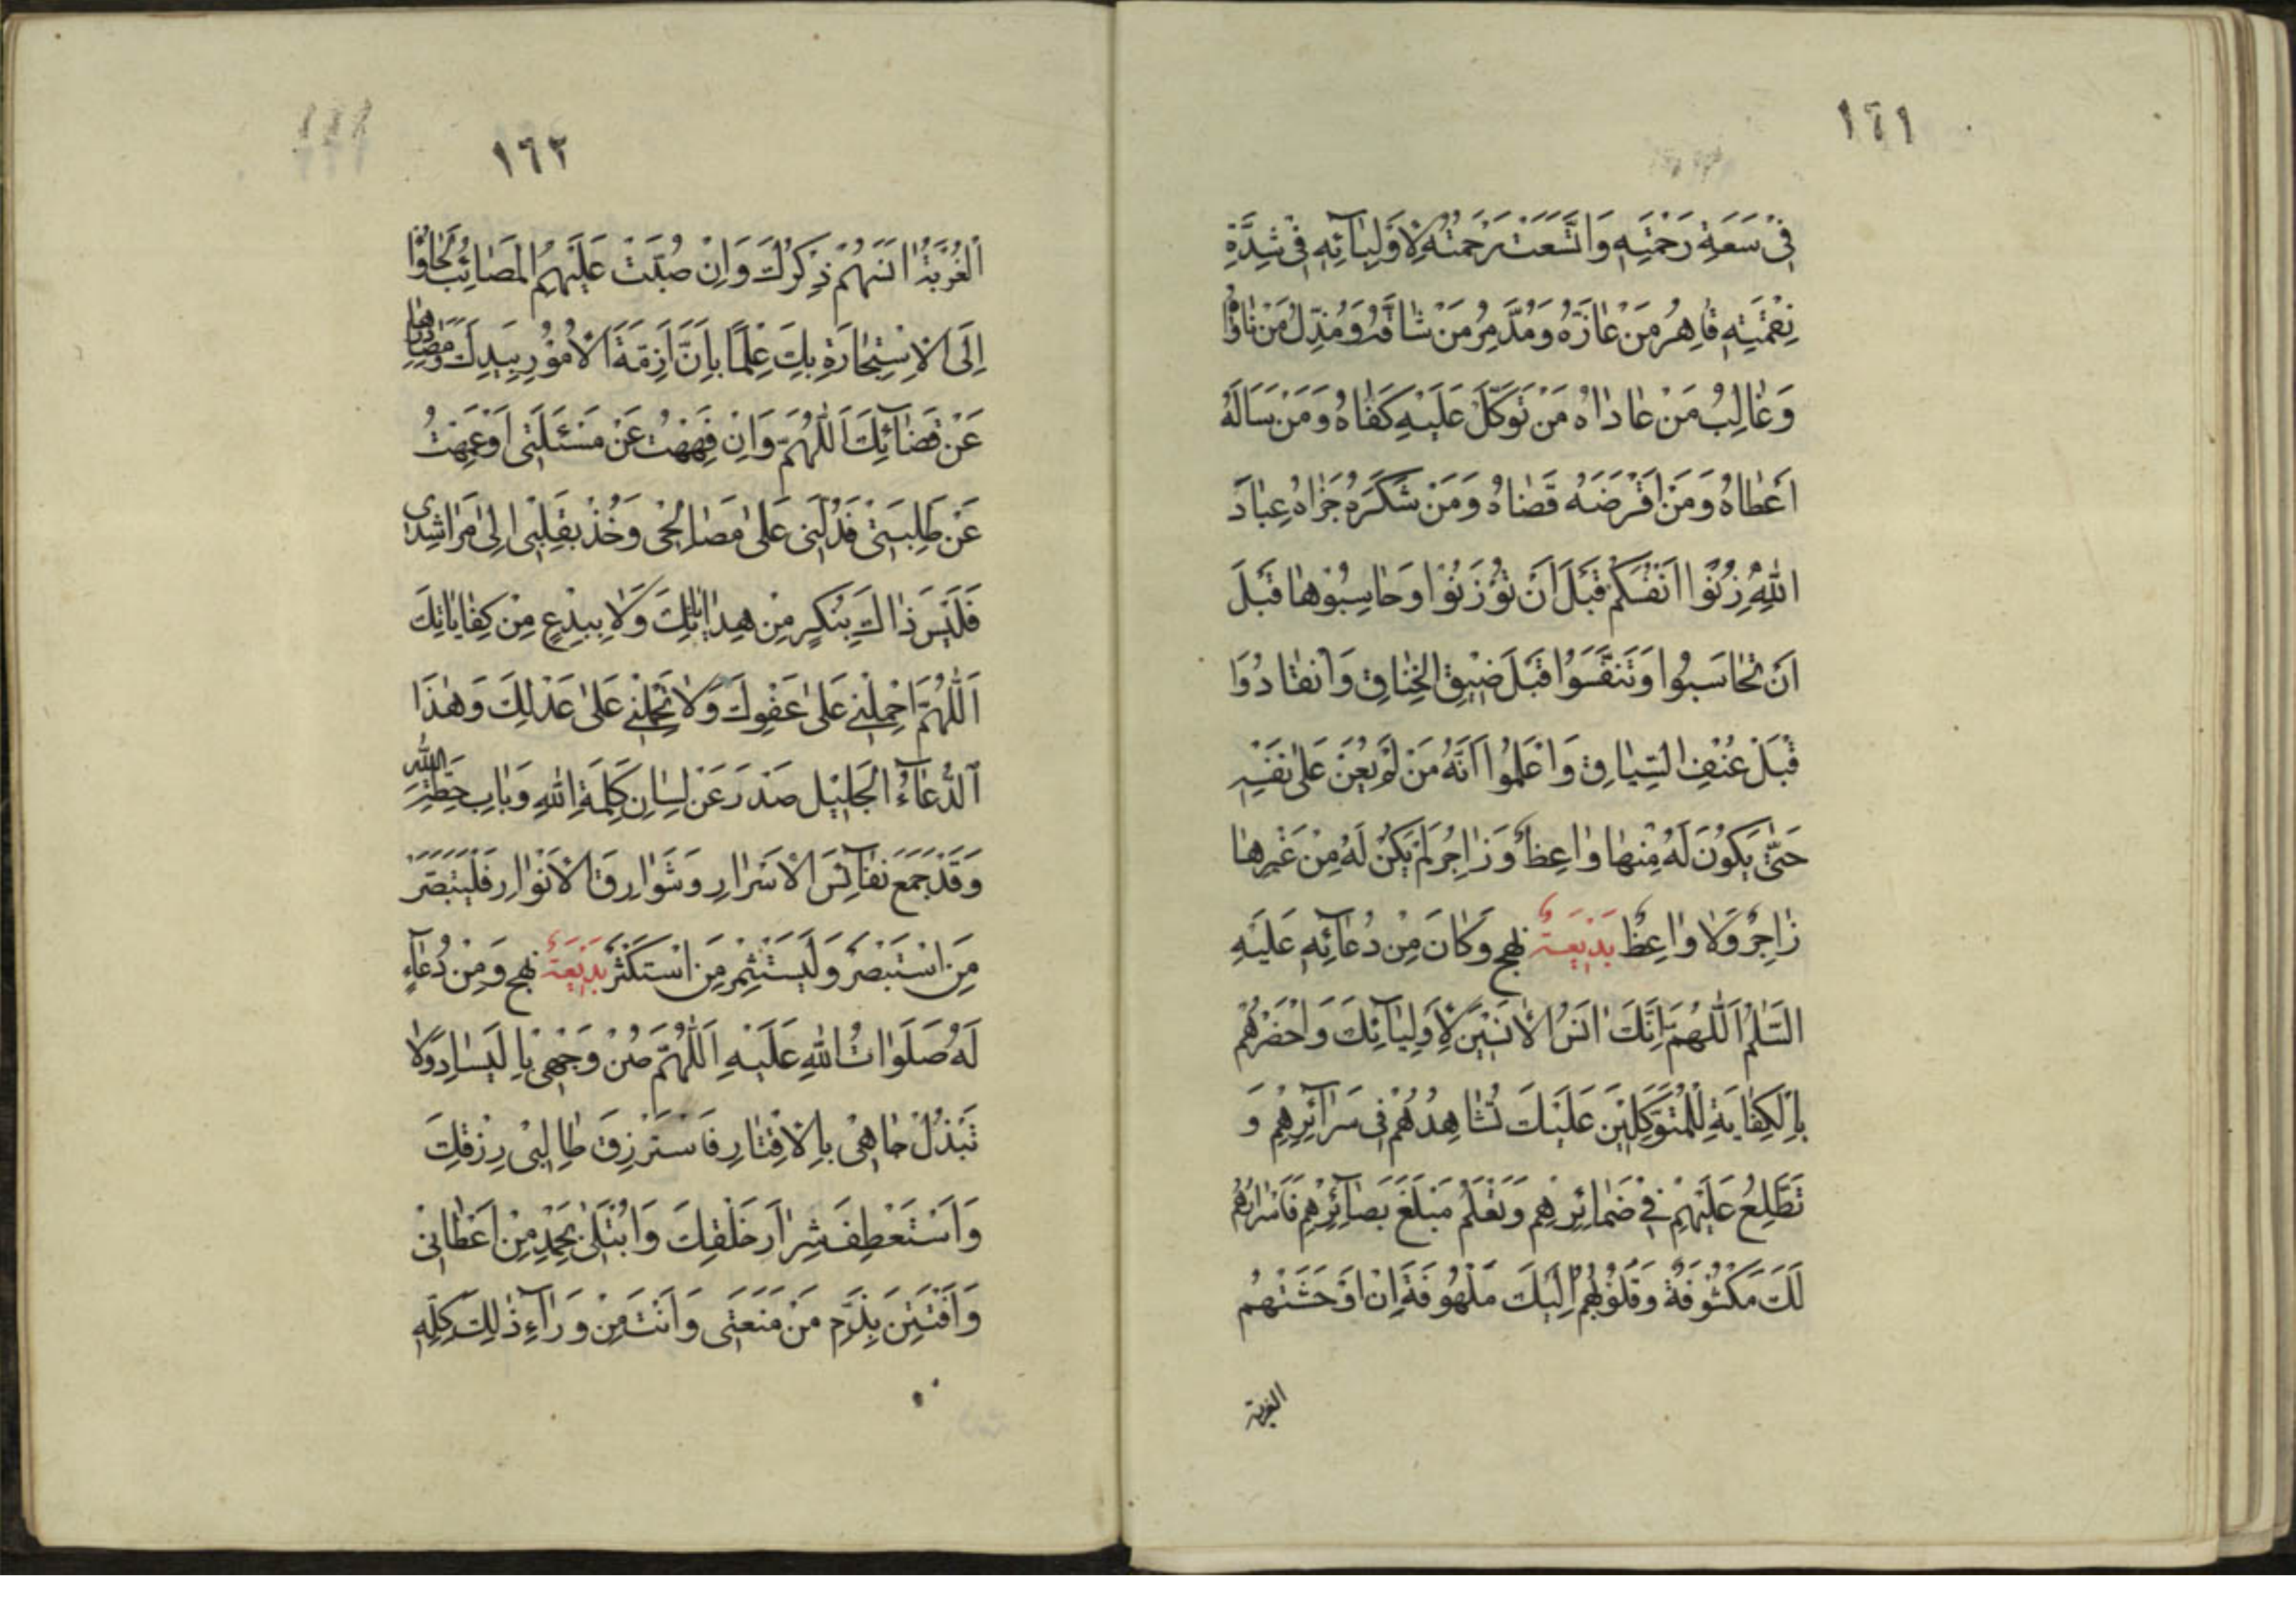 ١٦١
فِي سَعَةِ رَحْمَتِهِ وَاتَّسَعَتْ رَحْمَتُهُ لِاَوْلِيَآئِهِ فِي شِدَّةِ
نِقْمَتِهِ قَاهِرُ مَنْ عَازَّهُ وَمُدَمِّرُ مَنْ شَاقَّهُ وَمُذِلُّ مَنْ نَاوَاهُ
وَغَالِبُ مَنْ عَادَاهُ مَنْ تَوَكَّلَ عَلَيْهِ كَفَاهُ وَمَنْ سَاَلَهُ
اَعْطَاهُ وَمَنْ اَقْرَضَهُ قَضَاهُ وَمَنْ شَكَرَهُ جَزَاهُ عِبَادَ
اللهِ زِنُوْا اَنْفُسَكُمْ قَبْلَ اَنْ تُوْزَنُوْا وَحَاسِبُوْهَا قَبْلَ
اَنْ تُحَاسَبُوا وَتَنَفَّسُوْا قَبْلَ ضِيْقِ الْخِنَاقِ وَانْقَادُوْا
قَبْلَ عُنْفِ السِّيَاقِ وَاعْلَمُوْا اَنَّهُ مَنْ لَمْ يُعَنْ عَلٰى نَفْسِهِ
حَتّٰى يَكُوْنَ لَهُ مِنْهَا وَاعِظٌ وَزَاجِرٌ لَمْ يَكُنْ لَهُ مِنْ غَيْرِهَا
زَاجِرٌ وَلَا وَاعِظٌ بَدِيْعَةٌ نهج وَكَانَ مِنْ دُعَآئِهِ عَلَيْهِ
السَّلٰمُ اَللّٰهُمَّ اِنَّكَ اٰنَسُ الْاٰنِسِيْنَ لِاَوْلِيَآئِكَ وَاَحْضَرُهُمْ
بِالْكِفَايَةِ لِلْمُتَوَكِّلِيْنَ عَلَيْكَ تُشَاهِدُهُمْ فِي سَرَآئِرِهِمْ وَ
تَطَّلِعُ عَلَيْهِمْ فِيْ ضَمَائِرِهِمْ وَتَعْلَمُ مَبْلَغَ بَصَآئِرِهِمْ فَاَسْرَارُهُمْ
لَكَ مَكْشُوْفَةٌ وَقُلُوْبُهُمْ اِلَيْكَ مَلْهُوْفَةٌ اِنْ اَوْحَشَتْهُمْ
الغربة
١٦٢
الْغُرْبَةُ اٰنَسَهُمْ ذِكْرُكَ وَاِنْ صُبَّتْ عَلَيْهِمُ الْمَصَائِبُ لَجَاؤُا
اِلَى الْاِسْتِجَارَةِ بِكَ عِلْمًا بِاَنَّ اَزِمَّةَ الْاُمُوْرِ بِيَدِكَ وَمَصَادِرَهَا
عَنْ قَضَآئِكَ اَللّٰهُمَّ وَاِنْ فَهِهْتُ عَنْ مَسْئَلَتِي اَوْ عَمِهْتُ
عَنْ طَلِبَتِيْ فَدُلَّنِي عَلٰى مَصَالِحِي وَخُذْ بِقَلْبِي اِلٰى مَرَاشِدِي
فَلَيْسَ ذَاكَ بِنُكْرٍ مِنْ هِدَايَاتِكَ وَلَا بِبِدْعٍ مِنْ كِفَايَاتِكَ
اَللّٰهُمَّ احْمِلْنِي عَلٰى عَفْوِكَ وَلَا تَحْمِلْنِي عَلٰى عَدْلِكَ وَهٰذَا
الدُّعَآءُ الْجَلِيْلُ صَدَرَ عَنْ لِسَانِ كَلِمَةِ اللهِ وَبَابِ حِطَّةِ اللهِ
وَقَدْ جَمَعَ نَفَائِسَ الْاَسْرَارِ وَشَوَارِقَ الْاَنْوَارِ فَلْيَتَبَصَّرْ
مَنِ اسْتَبْصَرَ وَلْيَسْتَثْمِرْ مَنِ اسْتَكْثَرَ بَدِيْعَةٌ نهج وَمِنْ دُعَآءٍ
لَهُ صَلَوَاتُ اللهِ عَلَيْهِ اَللّٰهُمَّ صُنْ وَجْهِي بِالْيَسَارِ وَلَا
تَبْذُلْ جَاهِيْ بِالْاِقْتَارِ فَاَسْتَرْزِقَ طَالِبِيْ رِزْقِكَ
وَاَسْتَعْطِفَ شِرَارَ خَلْقِكَ وَاُبْتَلٰى بِحَمْدِ مَنْ اَعْطَانِيْ
وَاُفْتَتَنَ بِذَمِّ مَنْ مَنَعَنِي وَاَنْتَ مِنْ وَرَآءِ ذٰلِكَ كُلِّهِ